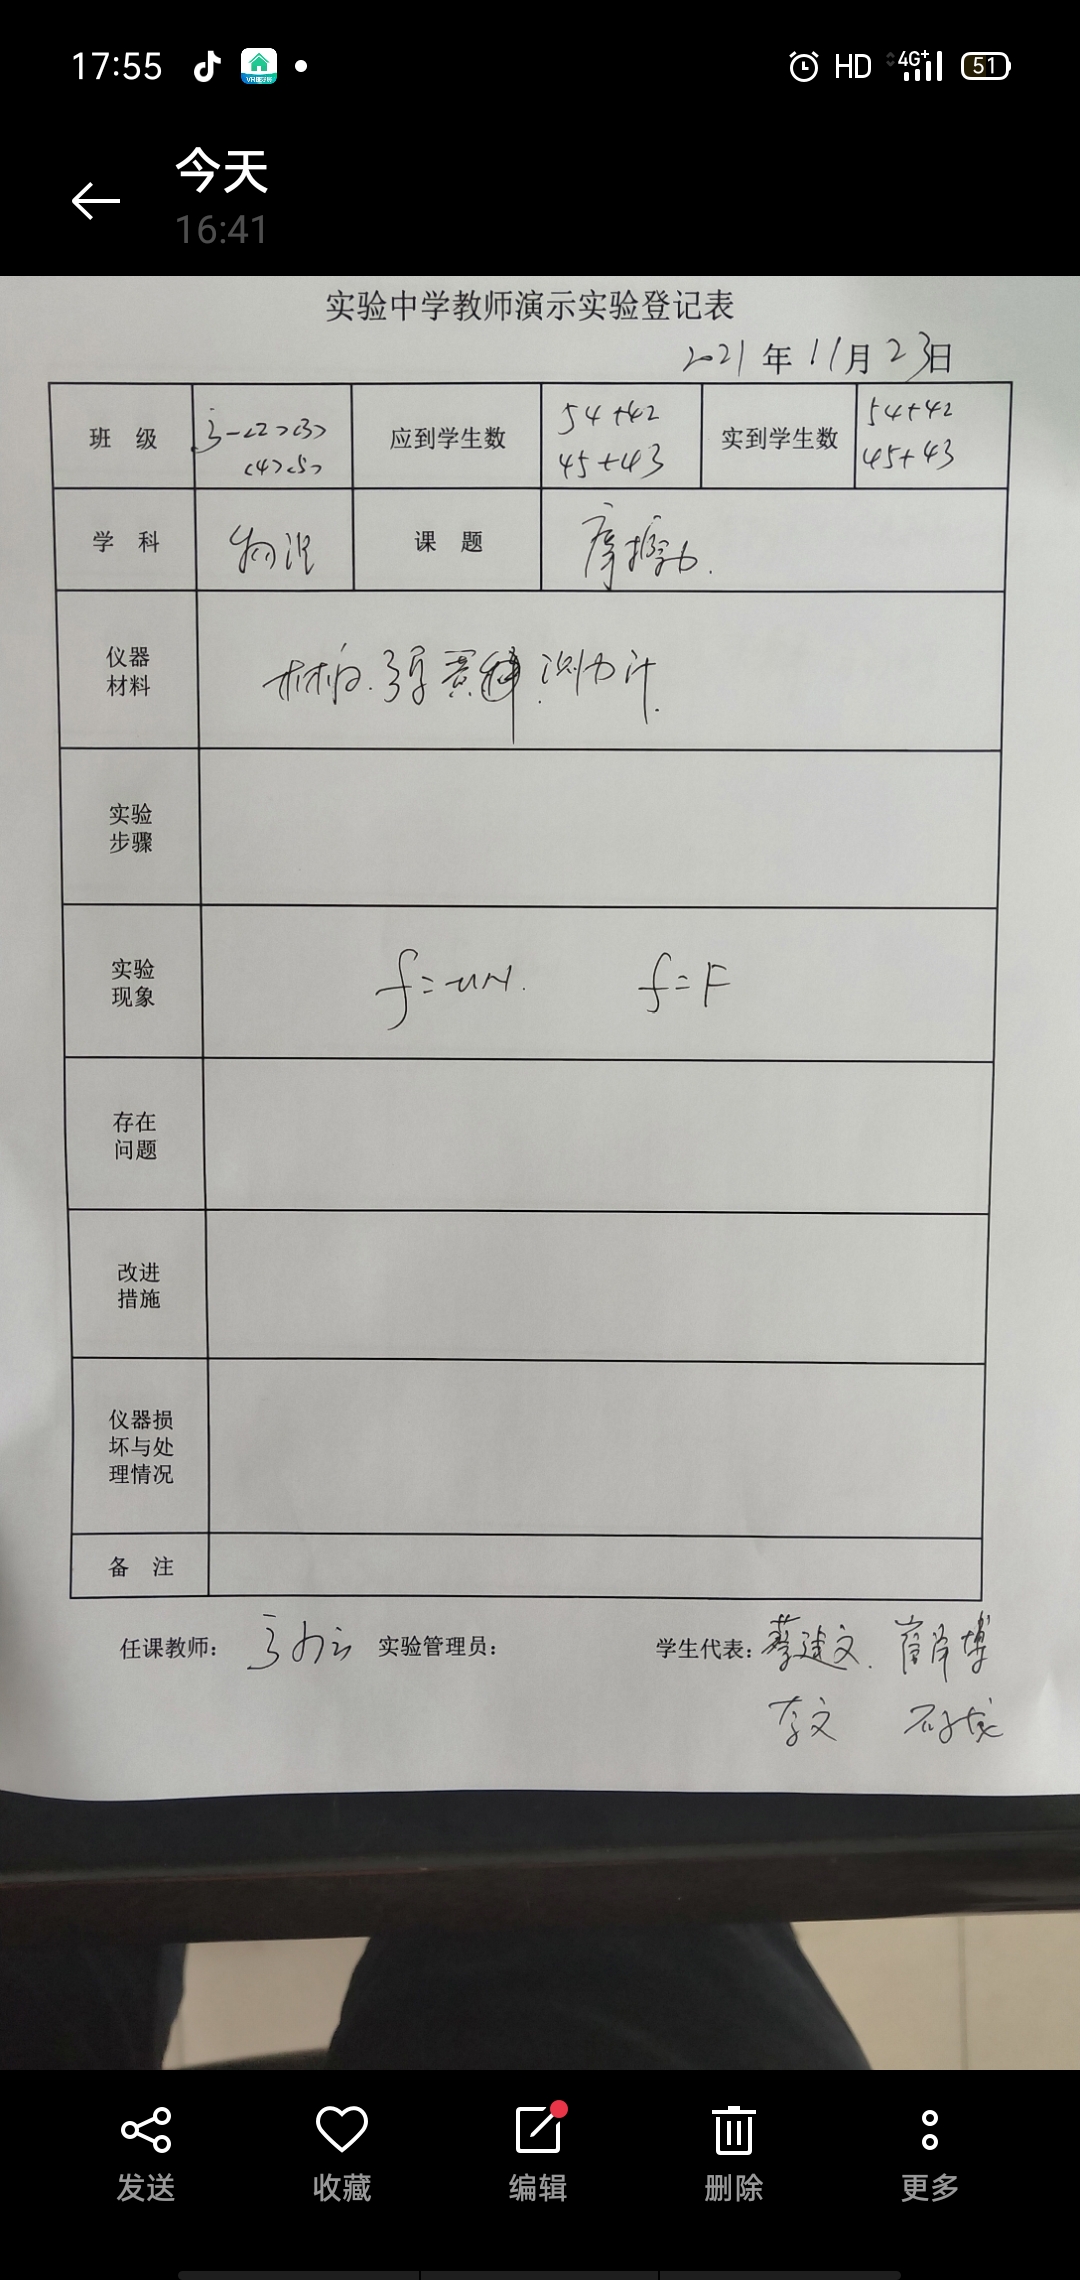 17:55
VR
HD 4G+ 51
今天
16:41
实验中学教师演示实验登记表
2021年11月23日
班 级 高一<2><3> 应到学生数 54+42 实到学生数 54+42
<4><5> 45+43 45+43
学 科 物理 课 题 摩擦力.
仪器
材料
木板. 弹簧 测力计.
实验
步骤
实验
现象
f=uN. f=F
存在
问题
改进
措施
仪器损
坏与处
理情况
备 注
任课教师: 实验管理员: 学生代表: 蔡建文. 博
李文
发送 收藏 编辑 删除 更多